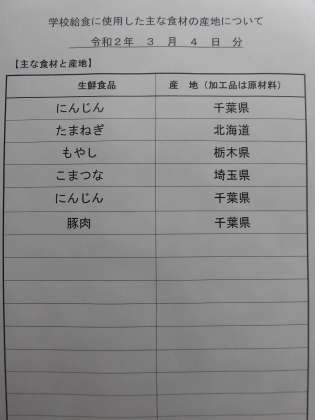 学校給食に使用した主な食材の産地について
令和２年 ３ 月 ４ 日 分
【主な食材と産地】
生鮮食品 産 地（加工品は原材料）
にんじん 千葉県
たまねぎ 北海道
もやし 栃木県
こまつな 埼玉県
にんじん 千葉県
豚肉 千葉県